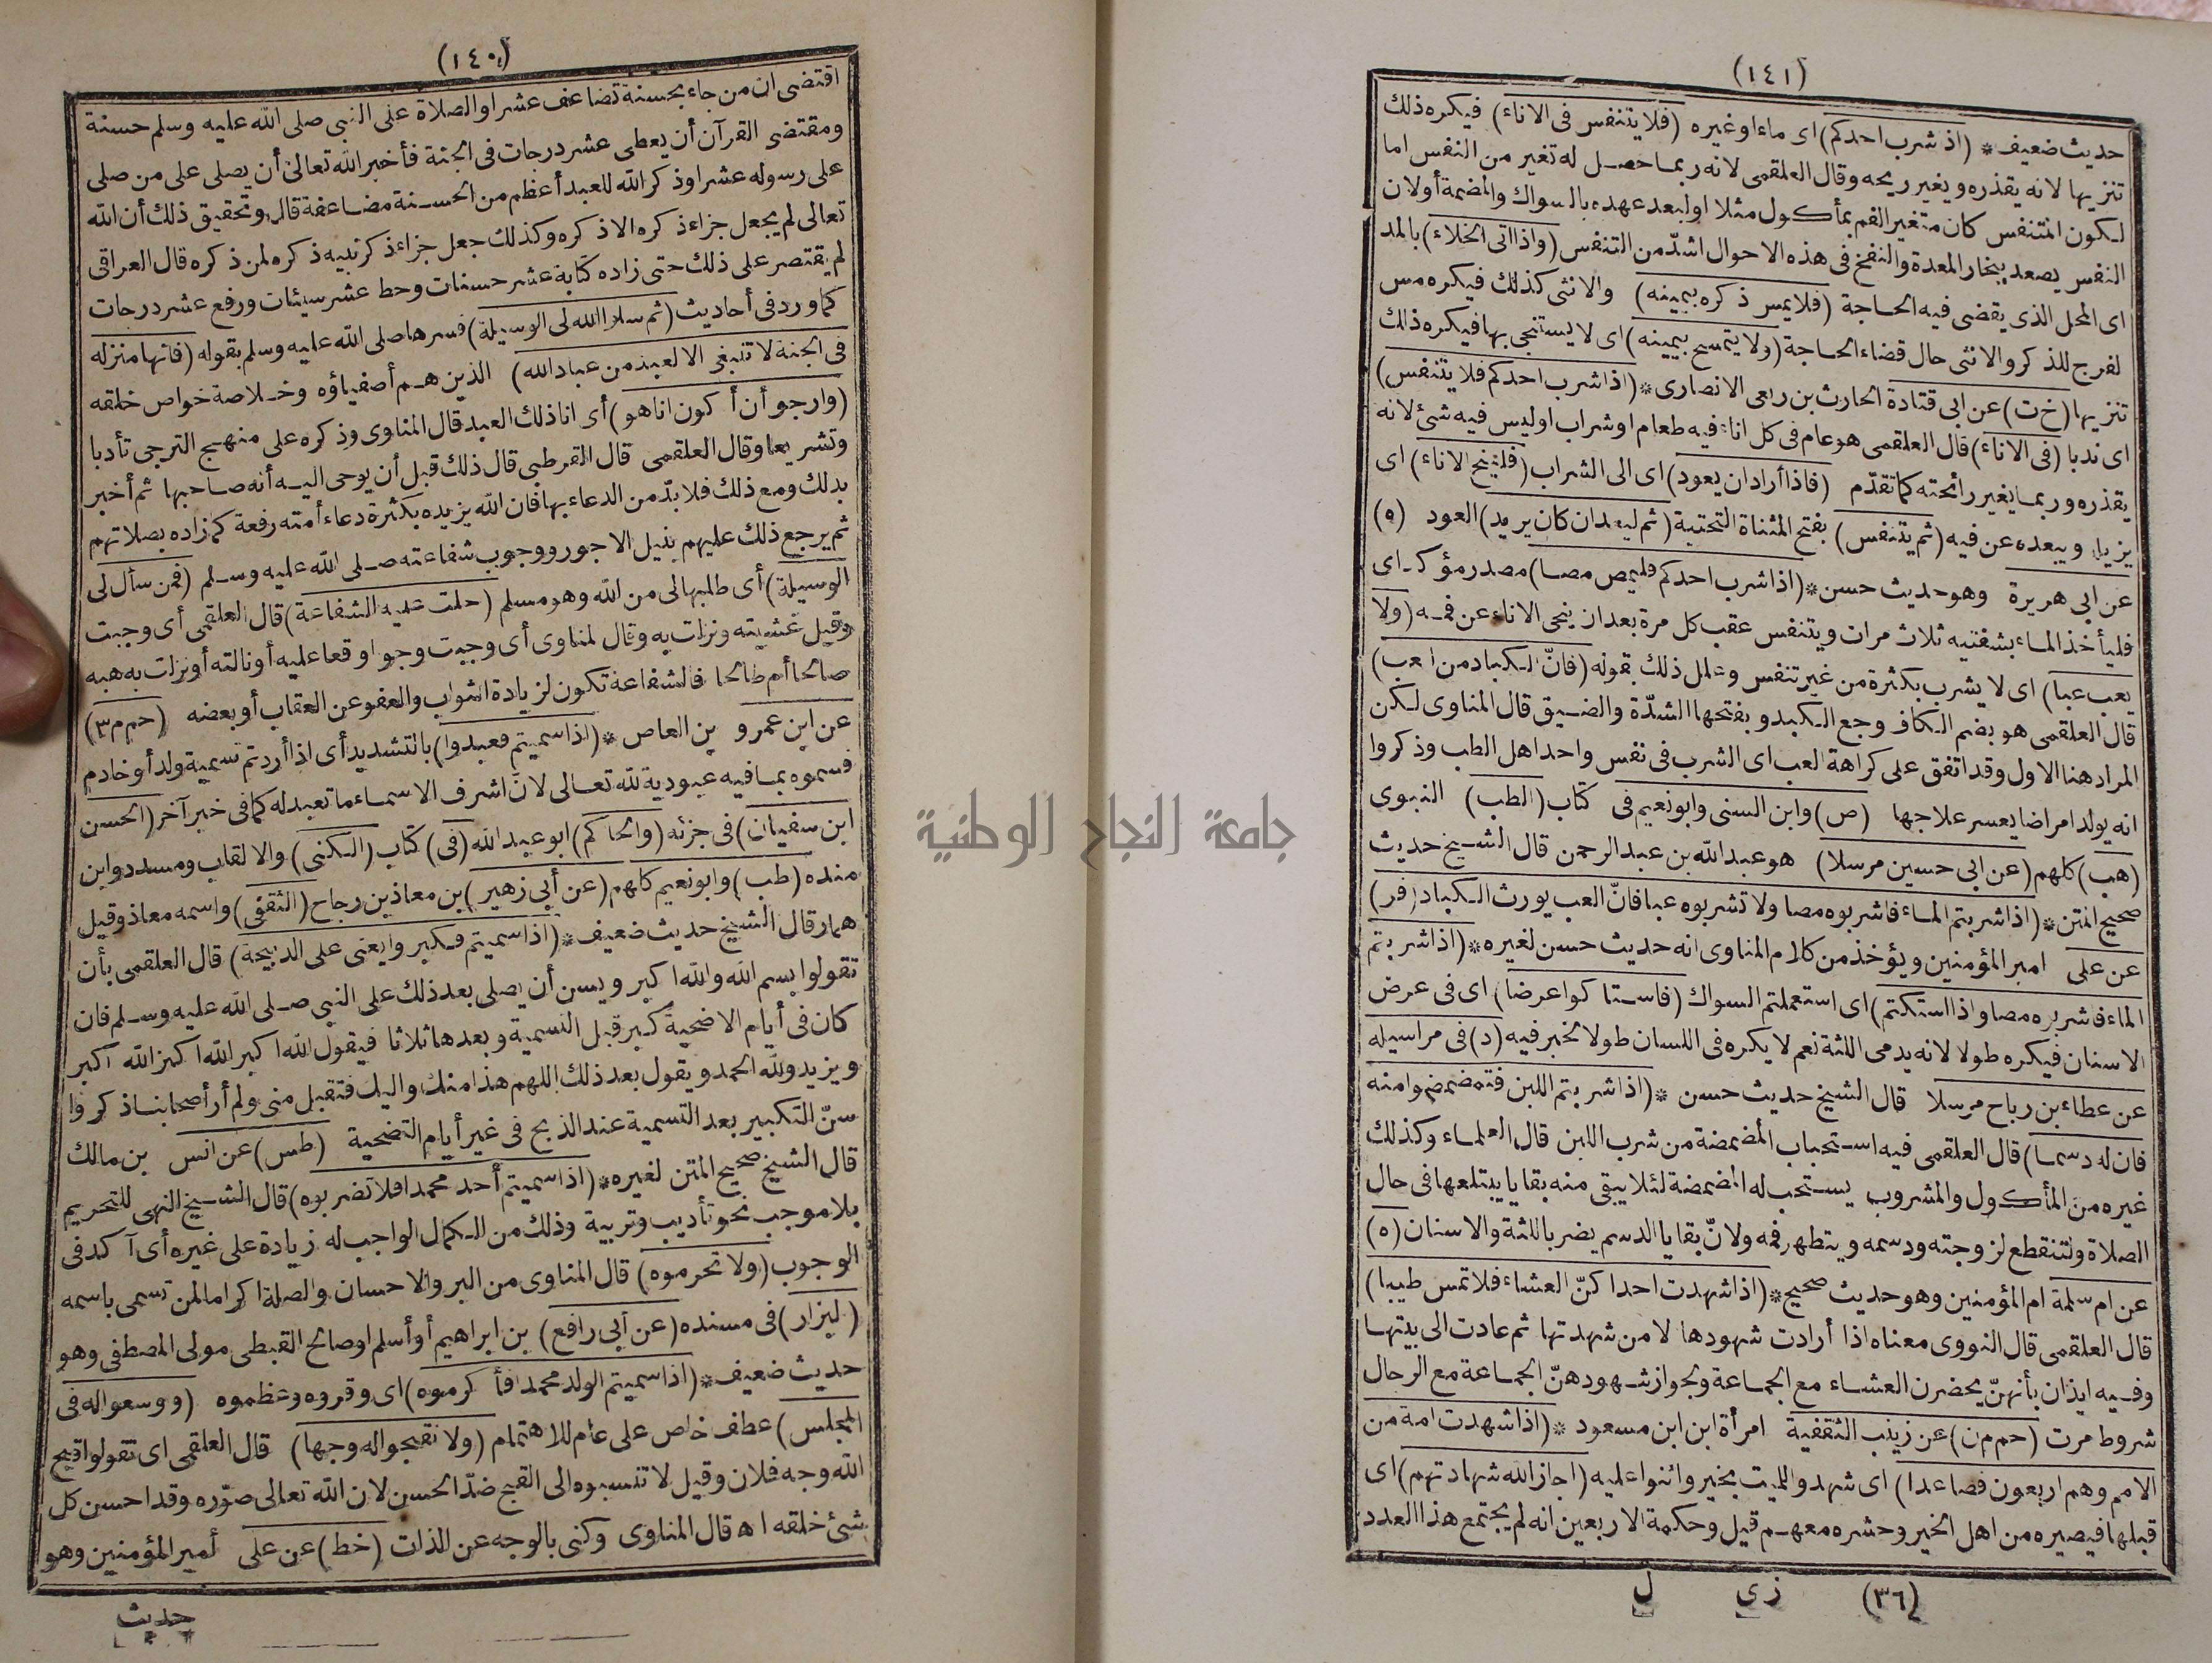 (١٤٠)
اقتضى ان من جاء بحسنة تضاعف عشرا والصلاة على النبي صلى الله عليه وسلم حسنة
ومقتضى القرآن أن يعطى عشر درجات فى الجنة فأخبر الله تعالى أن يصلى على من صلى
على رسوله عشرا وذكر الله للعبد أعظم من الحسنة مضاعفة قال وتحقيق ذلك أن الله
تعالى لم يجعل جزاء ذكره الا ذكره وكذلك جعل جزاء ذكر نبيه ذكره لمن ذكره قال العراقى
لم يقتصر على ذلك حتى زاده كتابة عشر حسنات وحط عشر سيئات ورفع عشر درجات
كما ورد فى أحاديث (ثم سلوا الله لى الوسيلة) فسرها صلى الله عليه وسلم بقوله (فانها منزلة
فى الجنة لا تنبغى الا لعبد من عباد الله) الذين هم أصفياؤه وخلاصة خواص خلقه
(وارجو أن أكون اناهو) أى انا ذلك العبد قال المناوى وذكره على منهج الترجى تأدبا
وتشريعا وقال العلقمى قال القرطبى قال ذلك قبل أن يوحى اليه أنه صاحبها ثم أخبر
بذلك ومع ذلك فلا بدّ من الدعاء بها فان الله يزيده بكثرة دعاء أمته رفعة كما زاده بصلاتهم
ثم يرجع ذلك عليهم بنيل الاجور ووجوب شفاعته صلى الله عليه وسلم (فمن سأل لى
الوسيلة) أى طلبها لى من الله وهو مسلم (حلت عليه الشفاعة) قال العلقمى أى وجبت
وقيل غشيته ونزلت به وقال المناوى أى وجبت وجوبا واقعا عليه أو نالته أو نزلت به هبه
صالحا أم طالحا فالشفاعة تكون لزيادة الثواب والعفو عن العقاب أو بعضه (حم م ٣)
عن ابن عمرو بن العاص * (اذا سميتم فعبدوا) بالتشديد أى اذا أردتم تسمية ولد أو خادم
فسموه بما فيه عبودية لله تعالى لانّ اشرف الاسماء ما تعبد له كما فى خبر آخر (الحسن
ابن سفيان) فى جزئه (والحاكم) ابو عبد الله (فى) كتاب (الكنى) والالقاب ومسدد وابن
منده (طب) وابو نعيم كلهم (عن أبي زهير) بن معاذ بن رجاح (الثقفى) واسمه معاذ وقيل
همار قال الشيخ حديث ضعيف * (اذا سميتم فكبروا يعنى على الذبيحة) قال العلقمى بأن
تقولوا بسم الله والله اكبر ويسن أن يصلى بعد ذلك على النبي صلى الله عليه وسلم فان
كان فى أيام الاضحية كبر قبل التسمية وبعدها ثلاثا فيقول الله اكبر الله اكبر الله اكبر
ويزيد ولله الحمد ويقول بعد ذلك اللهم هذا منك واليك فتقبل منى ولم أر أصحابنا ذكروا
سنّ التكبير بعد التسمية عند الذبح فى غير أيام التضحية (طس) عن انس بن مالك
قال الشيخ صحيح المتن لغيره * (اذا سميتم أحد محمدا فلا تضربوه) قال الشيخ النهى للتحريم
بلا موجب نحو تأديب وتربية وذلك من الكمال الواجب له زيادة على غيره أى آكد فى
الوجوب (ولا تحرموه) قال المناوى من البر والاحسان والصلة اكراما لمن تسمى باسمه
(البزار) فى مسنده (عن أبى رافع) بن ابراهيم أو أسلم او صالح القبطى مولى المصطفى وهو
حديث ضعيف * (اذا سميتم الولد محمدا فأكرموه) اى وقروه وعظموه (ووسعوا له فى
المجلس) عطف خاص على عام للاهتمام (ولا تقبحوا له وجها) قال العلقمى اى تقولوا قبح
الله وجه فلان وقيل لا تنسبوه الى القبح ضدّ الحسن لان الله تعالى صوّره وقد احسن كل
شئ خلقه اه قال المناوى وكنى بالوجه عن الذات (خط) عن على أمير المؤمنين وهو
حديث
(١٤١)
حديث ضعيف * (اذ شرب احدكم) اى ماء او غيره (فلا يتنفس فى الاناء) فيكره ذلك
تنزيها لانه يقذره ويغير ريحه وقال العلقمى لانه ربما حصل له تغير من النفس اما
لكون المتنفس كان متغير الفم بمأكول مثلا او لبعد عهده بالسواك والمضمضة أو لان
النفس يصعد ببخار المعدة والنفخ فى هذه الاحوال اشدّ من التنفس (واذا اتى الخلاء) بالمد
اى المحل الذى يقضى فيه الحاجة (فلا يمس ذكره بيمينه) والانثى كذلك فيكره مس
لفرج للذكر والانثى حال قضاء الحاجة (ولا يتمسح بيمينه) اى لا يستنجى بها فيكره ذلك
تنزيها (خ ت) عن ابى قتادة الحارث بن ربعى الانصارى * (اذا شرب احدكم فلا يتنفس)
اى ندبا (فى الاناء) قال العلقمى هو عام فى كل اناء فيه طعام او شراب او ليس فيه شئ لانه
يقذره وربما يغير رائحته كما تقدّم (فاذا أراد ان يعود) اى الى الشراب (فلينح الاناء) اى
يزيله ويبعده عن فيه (ثم يتنفس) بفتح المثناة التحتية (ثم ليعد ان كان يريد) العود (ه)
عن ابى هريرة وهو حديث حسن * (اذا شرب احدكم فليمص مصا) مصدر مؤكد اى
فليأخذ الماء بشفتيه ثلاث مرات ويتنفس عقب كل مرة بعد ان ينحى الاناء عن فمه (ولا
يعب عبا) اى لا يشرب بكثرة من غير تنفس وعلل ذلك بقوله (فانّ الكباد من العب)
قال العلقمى هو بضم الكاف وجع الكبد وبفتحها الشدّة والضيق قال المناوى لكن
المراد هنا الاول وقد اتفق على كراهة العب اى الشرب فى نفس واحد اهل الطب وذكروا
انه يولد امراضا يعسر علاجها (ص) وابن السنى وابو نعيم فى كتاب (الطب) النبوى
(هب) كلهم (عن ابى حسين مرسلا) هو عبد الله بن عبد الرحمن قال الشيخ حديث
صحيح المتن * (اذا شربتم الماء فاشربوه مصا ولا تشربوه عبا فانّ العب يورث الكباد (فر)
عن على امير المؤمنين ويؤخذ من كلام المناوى انه حديث حسن لغيره * (اذا شربتم
الماء فاشربوه مصا واذا استكتم) اى استعملتم السواك (فاستاكوا عرضا) اى فى عرض
الاسنان فيكره طولا لانه يدمى اللثة نعم لا يكره فى اللسان طولا لخبر فيه (د) فى مراسيله
عن عطاء بن رباح مرسلا قال الشيخ حديث حسن * (اذا شربتم اللبن فتمضمضوا منه
فان له دسما) قال العلقمى فيه استحباب المضمضة من شرب اللبن قال العلماء وكذلك
غيره من المأكول والمشروب يستحب له المضمضة لئلا يبقى منه بقايا يبتلعها فى حال
الصلاة ولتنقطع لزوجته ودسمه ويتطهر فمه ولانّ بقايا الدسم يضر باللثة والاسنان (ه)
عن ام سلمة ام المؤمنين وهو حديث صحيح * (اذا شهدت احدا كنّ العشاء فلا تمس طيبا)
قال العلقمى قال النووى معناه اذا أرادت شهودها لا من شهدتها ثم عادت الى بيتها
وفيه ايذان بأنهنّ يحضرن العشاء مع الجماعة ولجواز شهودهنّ الجماعة مع الرجال
شروط مرت (حم م ن) عن زينب الثقفية امرأة ابن ابن مسعود * (اذا شهدت امة من
الامم وهم اربعون فصاعدا) اى شهدوا للميت بخير واثنوا عليه (اجاز الله شهادتهم) اى
قبلها فيصيره من اهل الخير وحشره معهم قيل وحكمة الاربعين انه لم يجتمع هذا العدد
(٣٦) زى ل
جامعة النجاح الوطنية